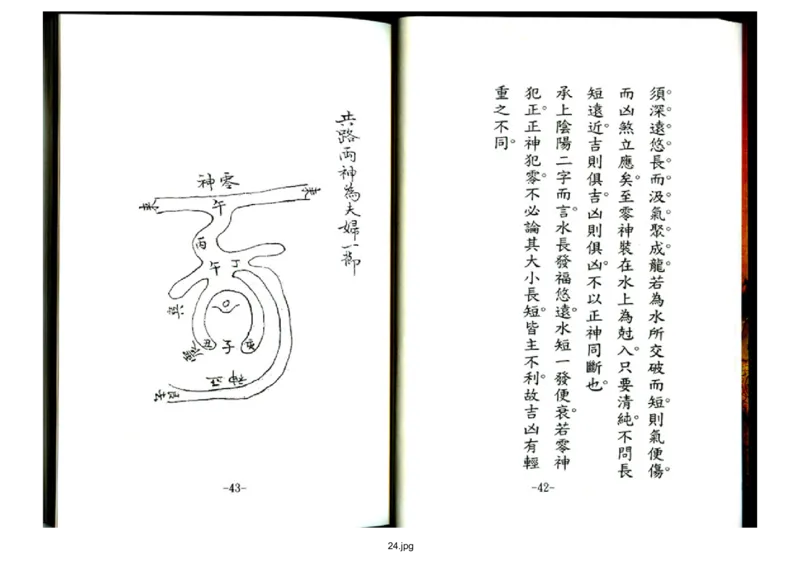 須。深。遠。悠。長。而。汲。氣。聚。成。龍。若為水所交破而短。則氣便傷。
而凶煞立應矣。至零神裝在水上為尅入。只要清純。不問長
短遠近。吉則俱吉。凶則俱凶。不以正神同斷也。
承上陰陽二字而言。水長發福悠遠。水短一發便衰。若零神
犯正。正神犯零。不必論其大小長短。皆主不利。故吉凶有輕
重之不同。
-42-
共路兩神為夫婦一節
零神
午
丙
午
丁
子
正神
-43-
24.jpg